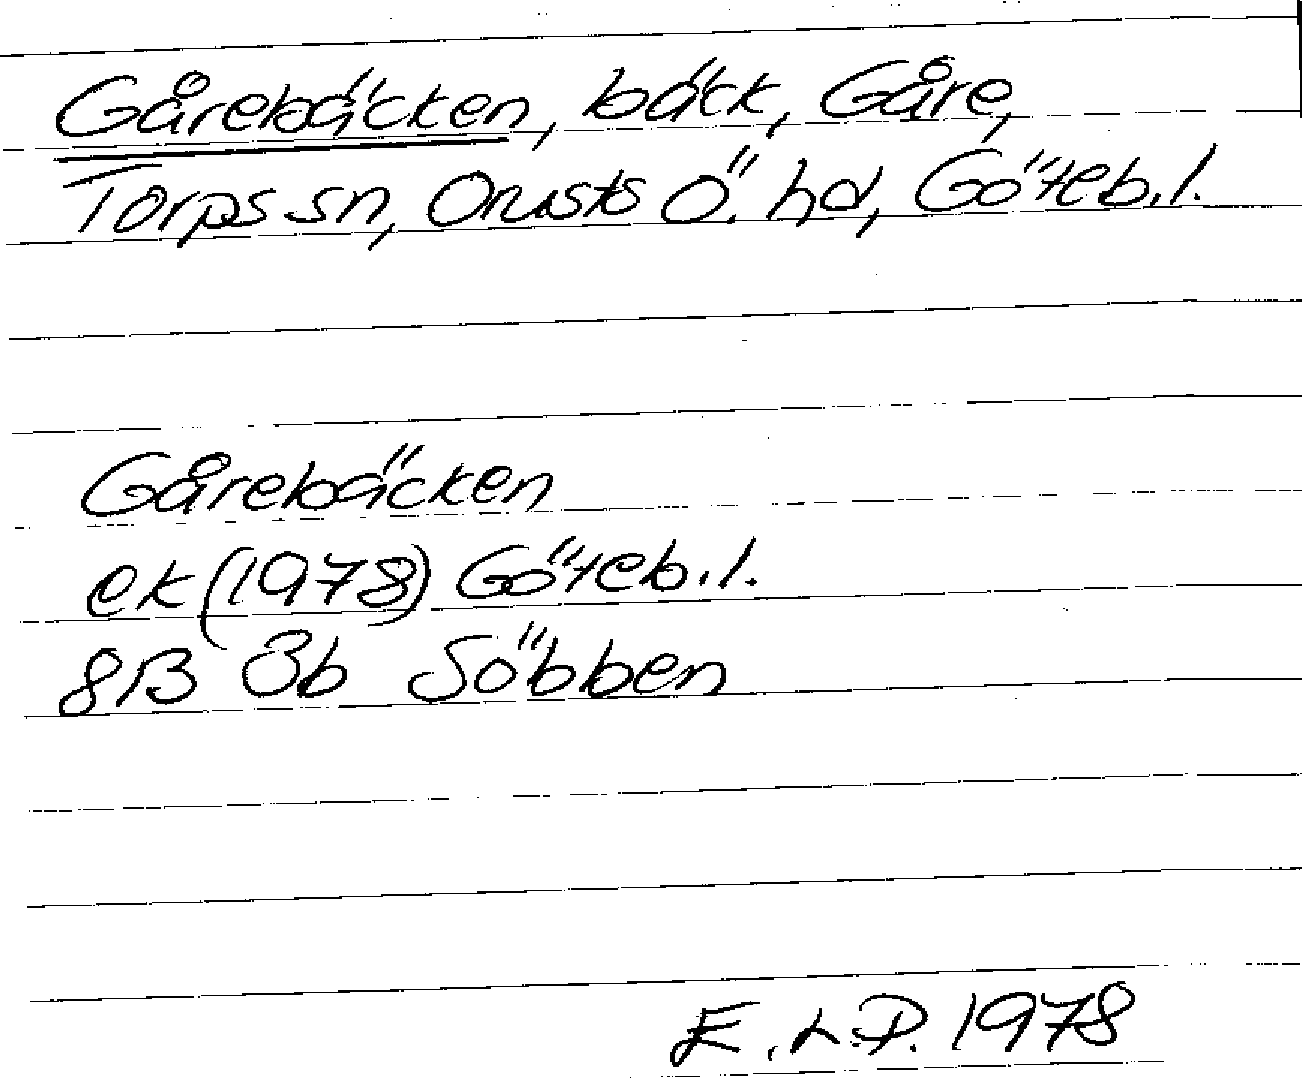 Gårebäcken, bäck, Gåre,
Torps sn, Orusts Ö. hd, Göteb.l.
Gårebäcken
ek (1978) Göteb.l.
8B 3b Söbben
E.L.P. 1978